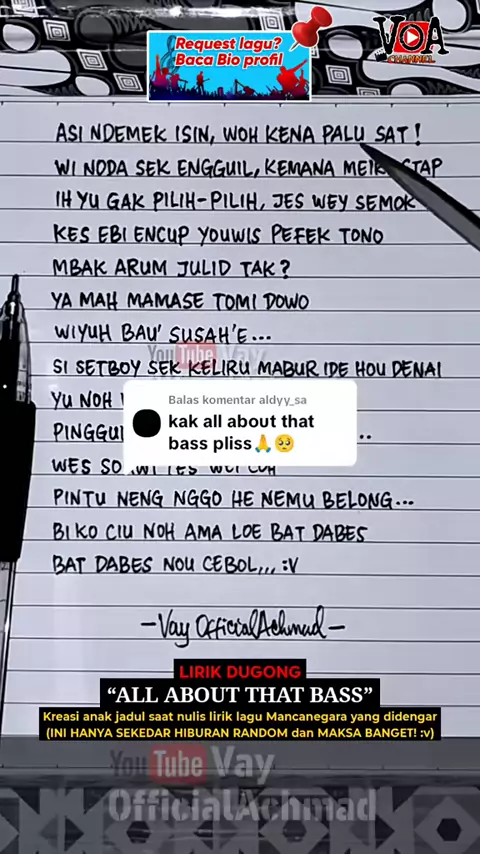 Request lagu?
Baca Bio profil
VOA
CHANNEL
ASI NDEMEK ISIN, WOH KENA PALU SAT!
WI NODA SEK ENGGUIL, KEMANA
IH YU GAK PILIH-PILIH, JES WEY SEMOK
KES EBI ENCUP YOUWIS PEFEK TONO
MBAK ARUM JULID TAK?
YA MAH MAMASE TOMI DOWO
WIYUH BAU' SUSAH'E...
SI SETBOY SEK KELIRU MABUR IDE HOU DENAI
YU NOH
Balas komentar aldyy_sa
kak all about that
bass pliss🙏🥺
WES
PINTU NENG NGGO HE NEMU BELONG...
BI KO CIU NOH AMA LOE BAT DABES
BAT DABES NOU CEBOL,,, :V
-Vay OfficialAchmad-
LIRIK DUGONG
"ALL ABOUT THAT BASS"
Kreasi anak jadul saat nulis lirik lagu Mancanegara yang didengar
(INI HANYA SEKEDAR HIBURAN RANDOM dan MAKSA BANGET! :v)
YouTube Vay
OfficialAchmad